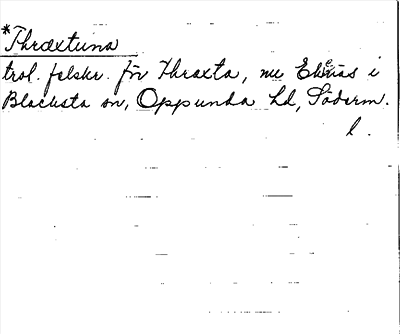 *Thræxtuna
trol. felskr. för Thraxta, nu Ekenäs i
Blacksta sn, Oppunda hd, Söderm.
l.